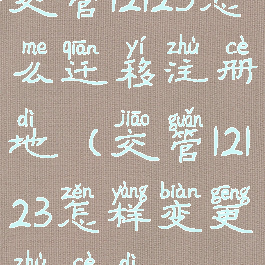 交管12123怎
me qiān yí zhù cè
么迁移注册
dì jiāo guǎn
地(交管121
zěn yàng biàn gēng
23怎样变更
zhù cè dì